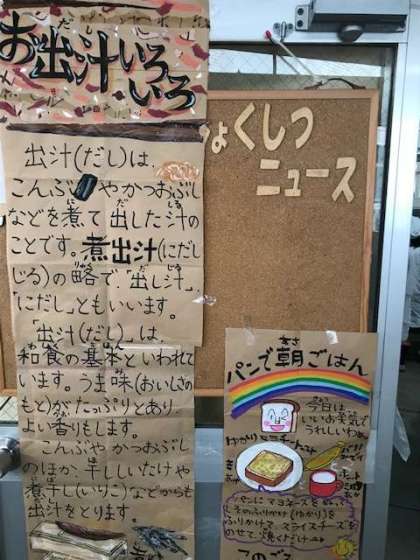 お出汁いろ
いろ
出汁(だし)は、
こんぶやかつおぶし
などを煮て出した汁の
ことです。煮出汁(にだし
じる)の略で、「出し汁」、
「にだし」ともいいます。
「出汁(だし)」は、
和食の基本といわれて
います。うま味(おいしさの
もと)がたっぷりとあり、
よい香りもします。
こんぶやかつおぶし
のほか、干ししいたけや
煮干し(いりこ)などからも
出汁をとります。
ょくしつ
ニュース
パンで朝ごはん
今日は
いいお天気で
うれしいわぁ
ゆかりチーズトースト
パンにマヨネーズを
そのふりかけ(ゆかり)を
ふりかけて、スライスチーズ
をのせて、焼くだけ